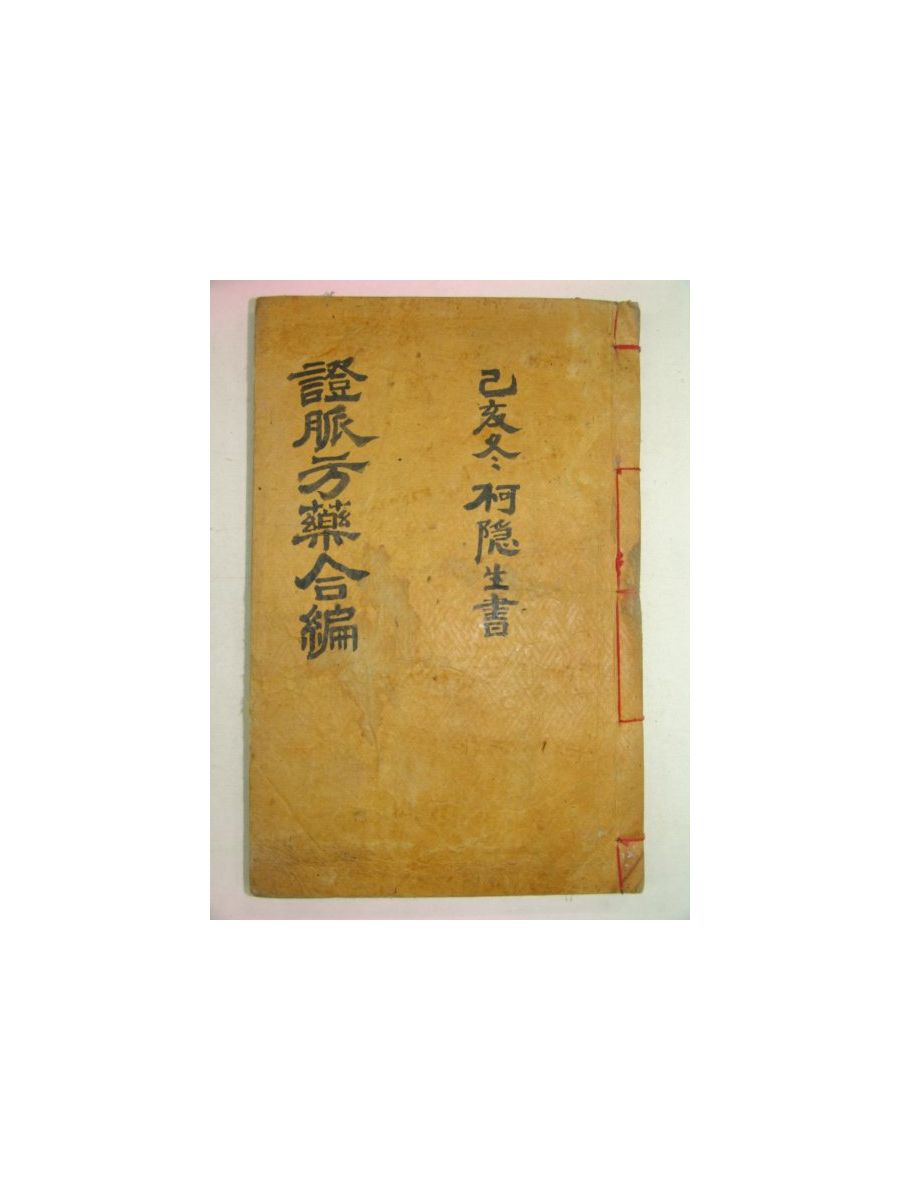 己亥冬柯隠生書
證脈方藥合編